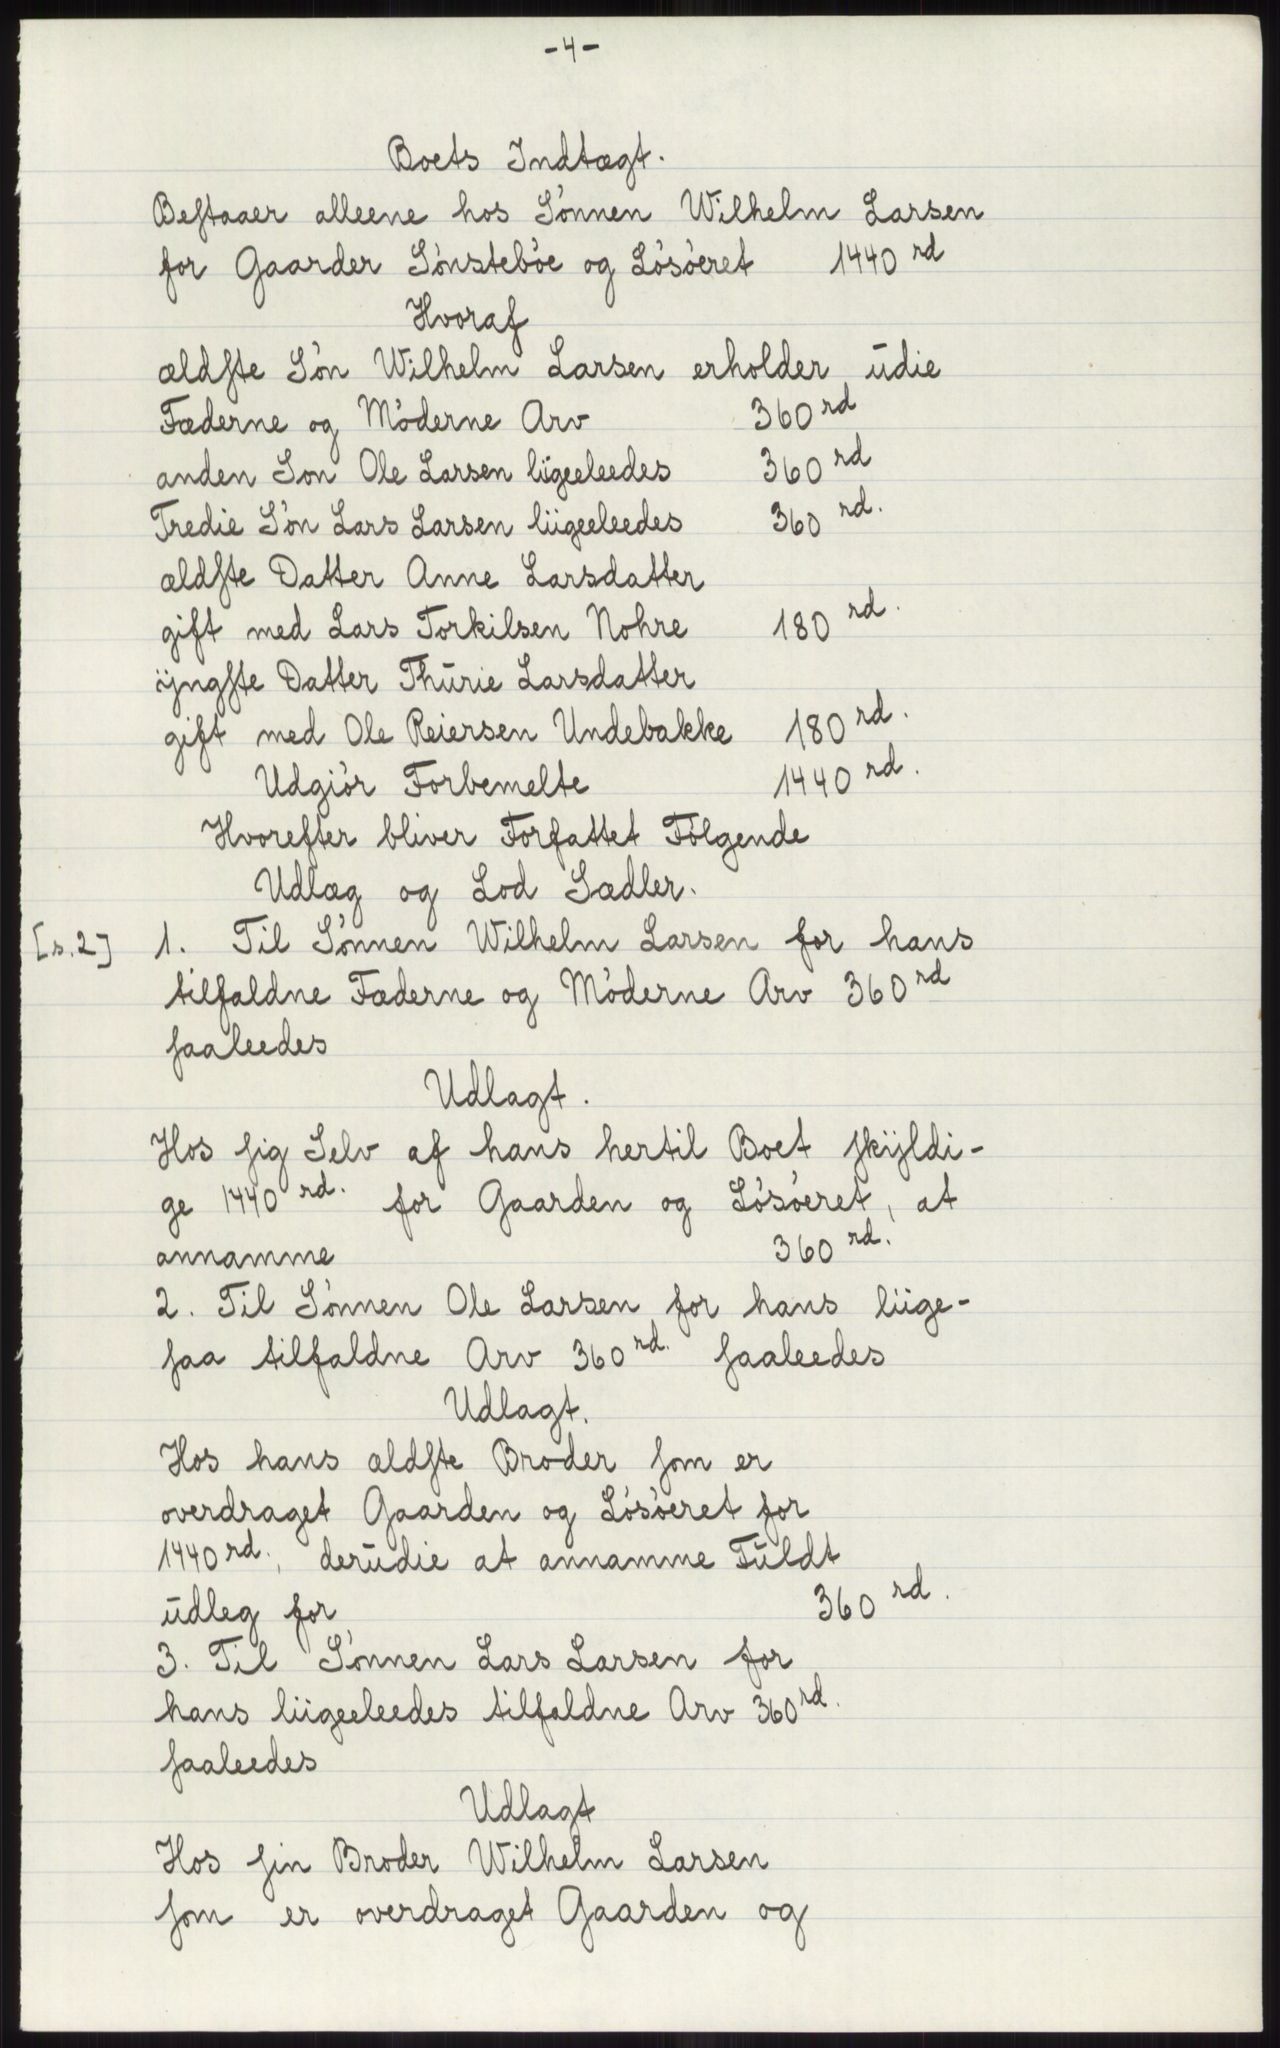 -4-
Boets Indtægt.
Beſtaaer alleene hos Sønnen Wilhelm Larsen
for Gaarder Sønstebøe og Løsøeret 1440 rd
Hvoraf
ældſte Søn Wilhelm Larsen erholder udie
Fæderne og Møderne Arv 360 rd
anden Son Ole Larsen liigeeleedes 360 rd
Tredie Søn Lars Larsen liigeeleedes 360 rd.
ældſte Datter Anne Larsdatter
gift med Lars Torkilsen Nohre 180 rd.
ÿngſte Datter Thurie Larsdatter
gift med Ole Reiersen Undebakke 180 rd.
Udgiør Forbemelte 1440 rd.
Hvorefter bliver Forfattet Følgende
Udlæg og Lod Sædler.
[s.2] 1. Til Sønnen Wilhelm Larsen for hans
tilfaldne Fæderne og Møderne Arv 360 rd
ſaaleedes
Udlagt.
Hos ſig Selv af hans hertil Boet ſkÿldi-
ge 1440 rd. for Gaarden og Løsøeret, at
annamme 360 rd.
2. Til Sønnen Ole Larsen for hans liige-
ſaa tilfaldne Arv 360 rd. ſaaleedes
Udlagt.
Hos hans ældſte Broder ſom er
overdraget Gaarden og Løsøeret for
1440 rd., derudie at annamme Fuldt
udleg for 360 rd.
3. Til Sønnen Lars Larsen for
hans liigeeleedes tilfaldne Arv 360 rd.
ſaaleedes
Udlagt
Hos ſin Broder Wilhelm Larsen
ſom er overdraget Gaarden og